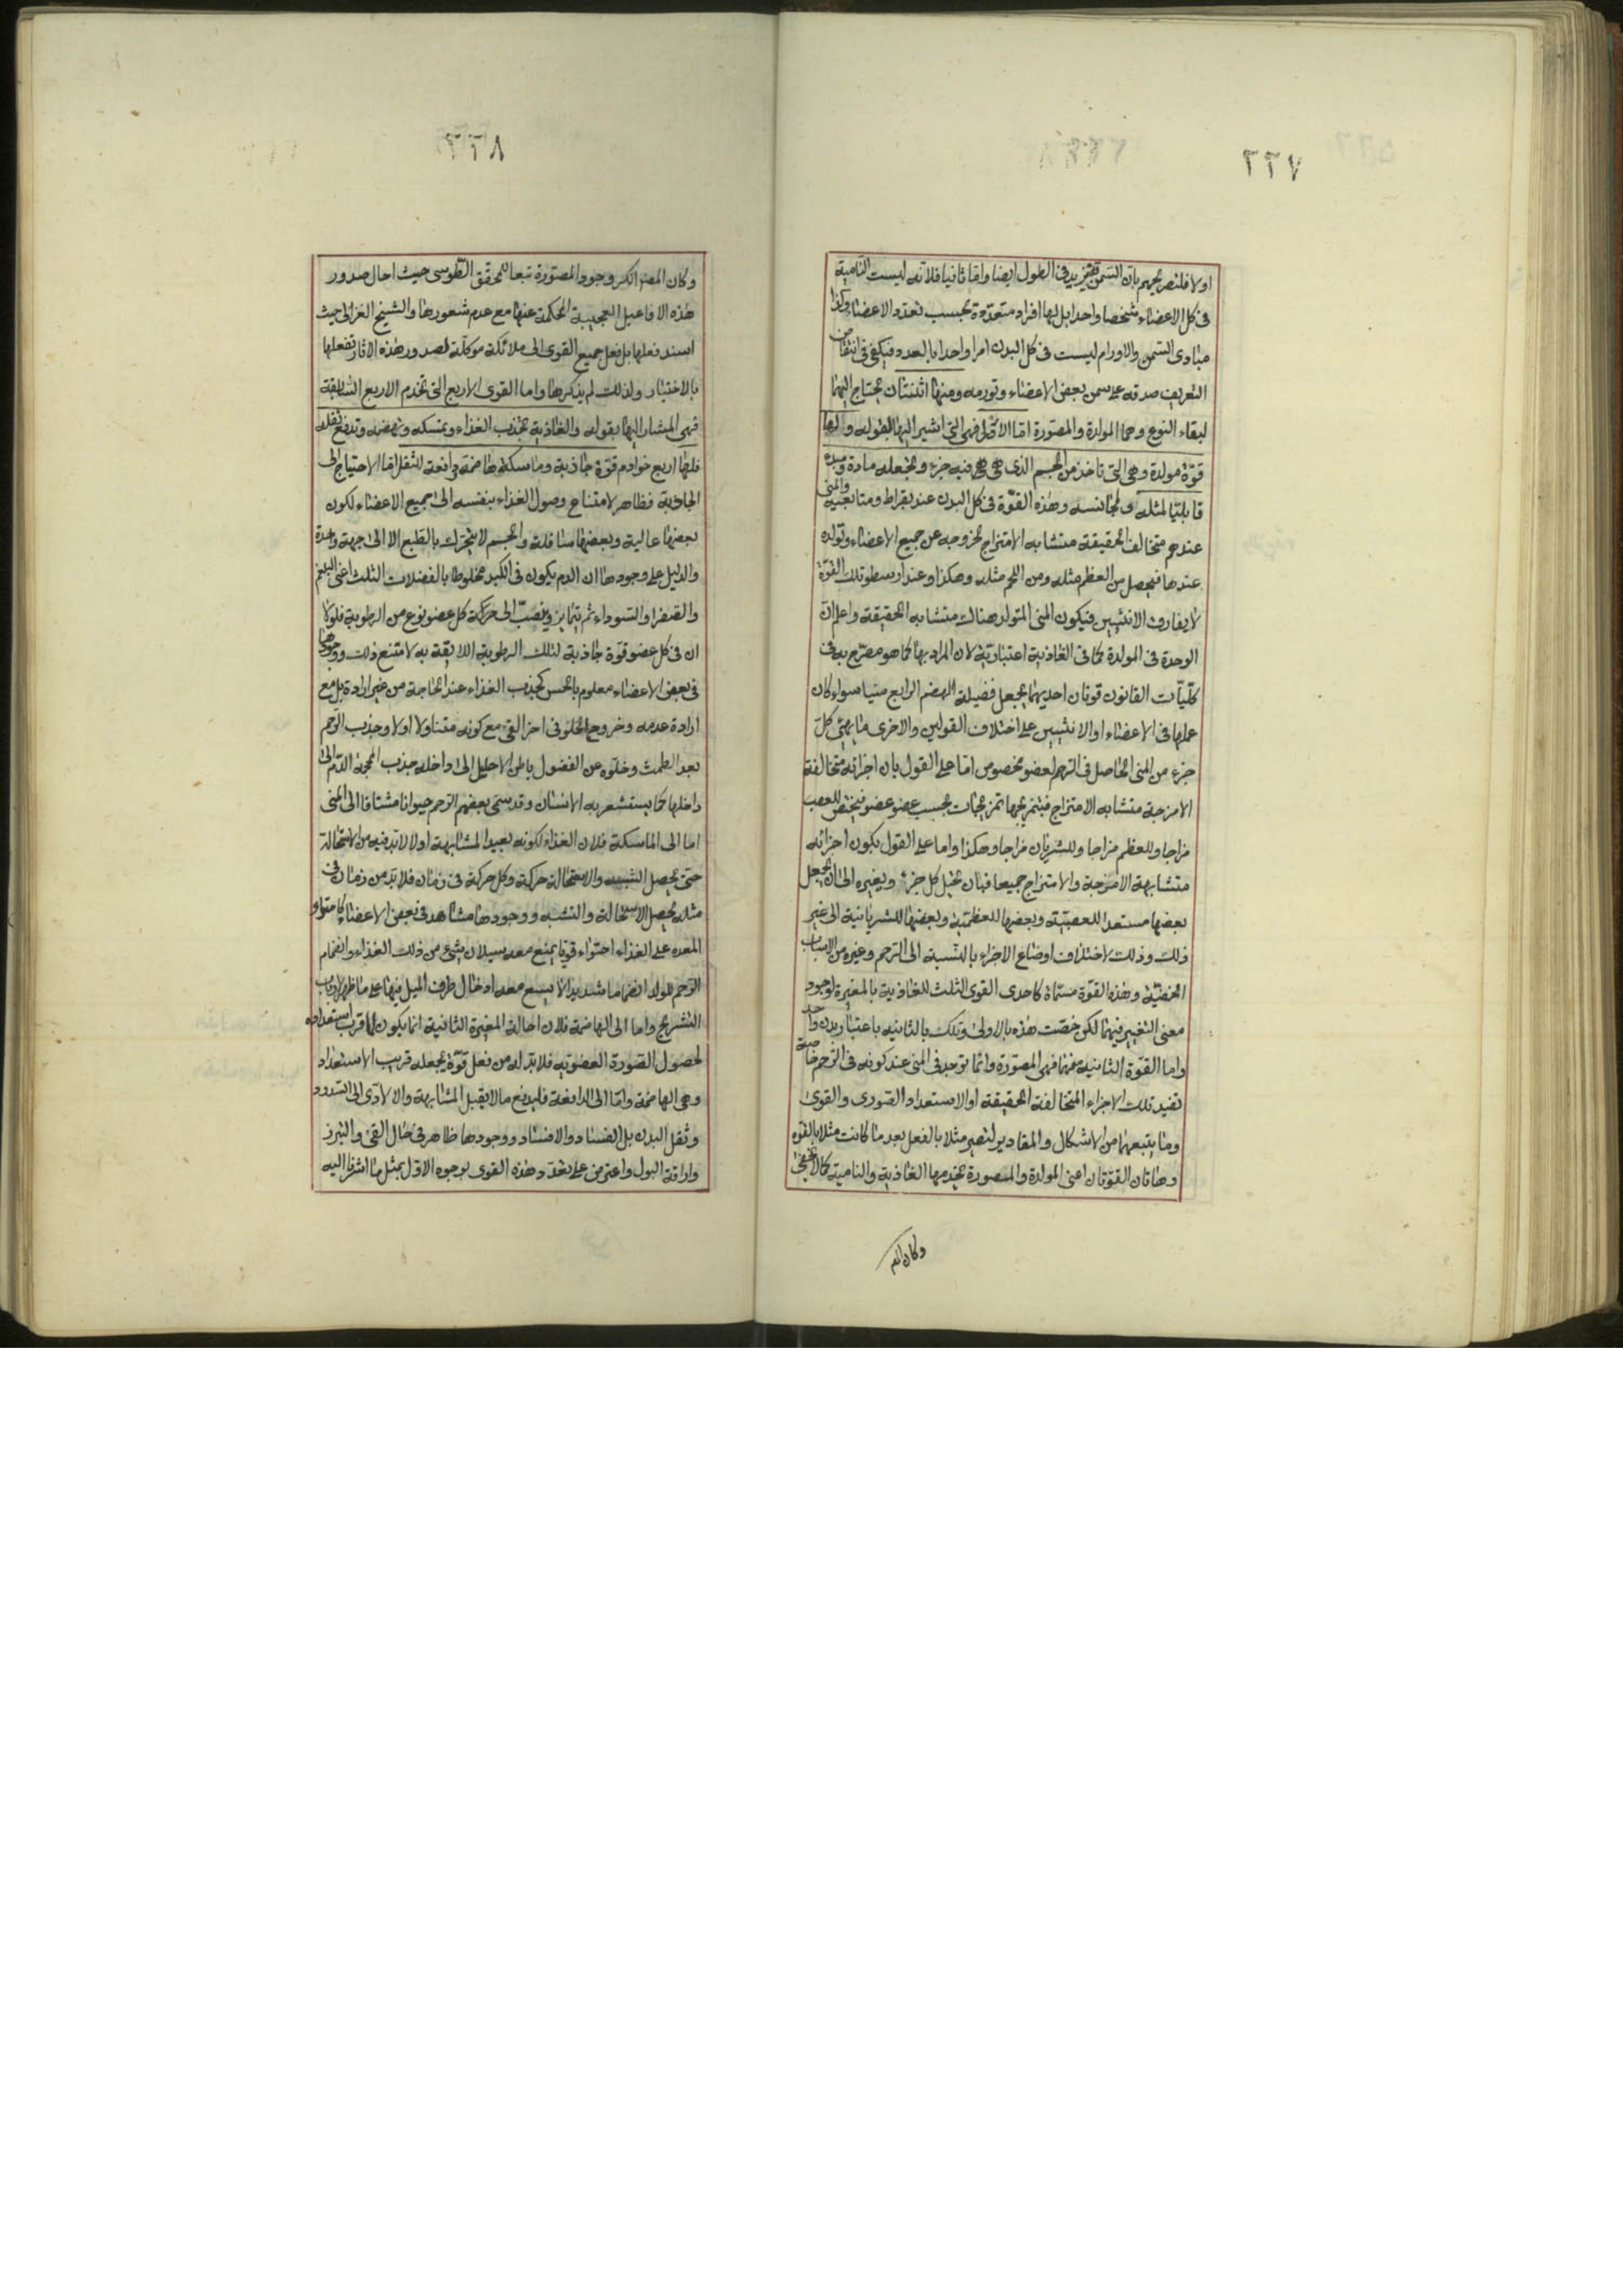 ٢٢٧
اولا فلتصريحهم بان السمن قد يزيد فى الطول ايضا واما ثانيا فلانه ليست النامية
فى كل الاعضاء شخصا واحدا بل لها افراد متعددة بحسب تعدد الاعضاء وكذا
مبادى السمن والاورام ليست فى كل البدن امرا واحدا بالعدد فيكفى فى انتقاض
التعريف صدقه على سمن بعض الاعضاء وتورمه ومنها اثنتان يحتاج اليهما
لبقاء النوع وهما المولدة والمصورة اما الاولى فهى التى اشير اليها بقوله ولها
قوة مولدة وهى التى تاخذ من الجسم الذى هى فيه جزء وتجعله مادة ومبدء
قابليا لمثله او لمجانسه وهذه القوة فى كل البدن عند بقراط ومتابعيه والمنى
عندهم متخالف الحقيقة متشابه الامتزاج لخروجه عن جميع الاعضاء وتولده
عندها فيحصل من العظم مثله ومن اللحم مثله وهكذا وعند ارسطو تلك القوة
لا يفارق الانثيين فيكون المنى المتولد هناك متشابه الحقيقة واعلم ان
الوحدة فى المولدة كما فى الغاذية اعتبارية لان المراد بها كما هو مصرح به فى
كليات القانون قوتان احديهما يجعل فضيلة الهضم الرابع منيا سواء كان
عملها فى الاعضاء او الانثيين على اختلاف القولين والاخرى ما يهيئ كل
جزء من المنى الحاصل فى الرحم لعضو مخصوص اما على القول بان اجزائه متخالفة
الامزجة متشابه الامتزاج فبتمزيجها تمزيجات بحسب عضو عضو فيختص للعصب
مزاجا وللعظم مزاجا وللشريان مزاجا وهكذا واما على القول بكون اجزائه
متشابهة الامزجة والامتزاج جميعا فبان يحيل كل جزء ويغيره الى ان يجعل
بعضها مستعدا للعصبية وبعضها للعظمية وبعضها للشريانية الى غير
ذلك وذلك لاختلاف اوضاع الاجزاء بالنسبة الى الرحم وغيره من الاسباب
الخفية وهذه القوة مسماة كاحدى القوى الثلث للغاذية بالمغيرة لوجود
معنى التغيير فيهما لكن خصت هذه بالاولى وتلك بالثانيه باعتبار بدن واحد
واما القوة الثانية منهما فهى المصورة وانما توجد فى المنى عند كونه فى الرحم خاصة
تفيد تلك الاجزاء المتخالفة الحقيقة او الاستعداد الصورى والقوى
وما يتبعهما من الاشكال والمقادير لتصير مثلا بالفعل بعد ما كانت مثلا بالقوة
وهاتان القوتان اعنى المولدة والمصورة يخدمها الغاذية والنامية كما لا يخفى
وكان المص
٢٢٨
وكان المص انكر وجود المصورة تبعا للمحقق الطوسى حيث احال صدور
هذه الافاعيل العجيبة المحكمة عنها مع عدم شعورها والشيخ الغزالى حيث
اسند فعلها بل فعل جميع القوى الى ملائكة موكلة لصدور هذه الاثار تفعلها
بالاختيار ولذلك لم يذكرها واما القوى الاربع التى تخدم الاربع السابقة
فهى المشار اليها بقوله والغاذية تجذب الغذاء وتمسكه وتهضمه وتدفع ثقله
فلها اربع خوادم قوة جاذبة وماسكة هاضمة دافعة للثقل اما الاحتياج الى
الجاذبة فظاهر لامتناع وصول الغذاء بنفسه الى جميع الاعضاء لكون
بعضها عالية وبعضها سافلة والجسم لا يتحرك بالطبع الا الى جهة واحدة
والدليل على وجودها ان الدم يكون فى الكبد مخلوطا بالفضلات الثلث اعنى البلغم
والصفرا والسوداء ثم يتمايز وينصب الى جهة كل عضو نوع من الرطوبة فلولا
ان فى كل عضو قوة جاذبة لتلك الرطوبة اللايقة به لامتنع ذلك ووجودها
فى بعض الاعضاء معلوم بالحس كجذب الغذاء عند الحاجة من غير ارادة بل مع
ارادة عدمه وخروج الحلو فى اخر القئ مع كونه متناولا اولا وجذب الرحم
بعد الطمث وخلوه عن الفضول باطن الاحليل الى داخله جذب المحجمة الدم الى
داخلها كما يستشعر به الانسان وقد سمى بعضهم الرحم حيوانا مشتاقا الى المنى
اما الى الماسكة فلان الغذاء لكونه بعيد المشابهة اولا لابد فيه من الاستحالة
حتى يحصل التشبه والاستحالة حركة وكل حركة فى زمان فلابد من زمان فى
مثله يحصل الاستحالة والتشبه ووجودها مشاهد فى بعض الاعضاء كاحتواء
المعده على الغذاء احتواء قويا يمنع معه سيلان شئ من ذلك الغذاء وانضمام
الرحم للولد انضماما شديدا لا يسع معه ادخال طرف الميل فيها على ما ظهر لارباب
التشريح واما الى الهاضمة فلان احالة المغيرة الثانية انما يكون لما قرب استعداده
لحصول الصورة العضوية فلابد له من فعل قوة يجعله قريب الاستعداد
وهى الهاضمة واما الى الدافعة فليدفع ما لا يقبل المشابهة والا لادى الى السدود
وثقل البدن بل الفساد والافساد ووجودها ظاهر فى حال القئ والتبرز
واراقة البول واعترض على تعدد هذه القوى بوجوه الاول بمثل ما اشرنا اليه